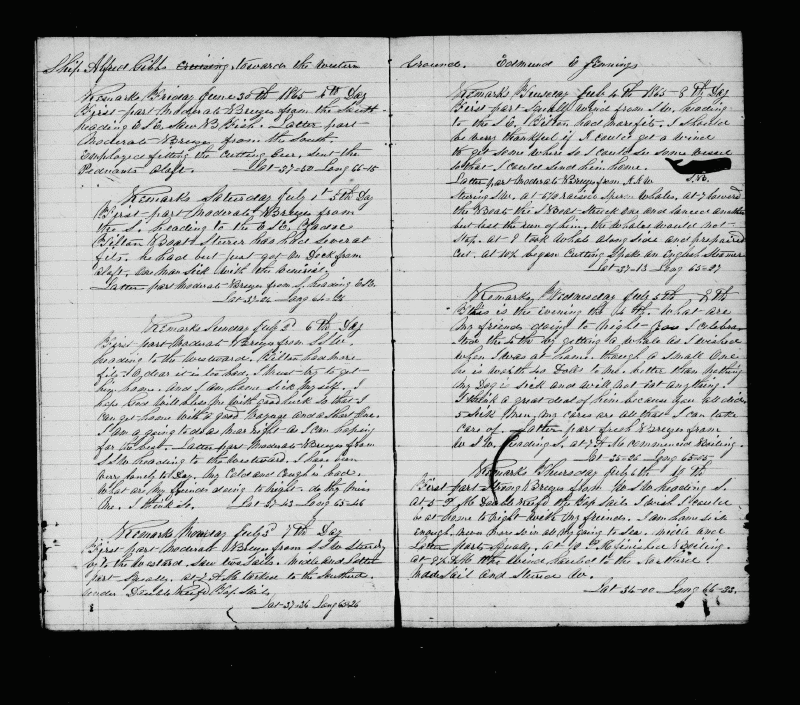 Ship Alfred Gibbs cruising towards the western
Remarks Friday June 30th 1865 5th Day
First part Moderate Breezes from the South
heading E S E Stew N B Fish. Latter part
Moderate Breezes from the South.
Employed fitting the Cutting Gear, sent the
aloft. Lat-37-50 Long 66-15
Remarks Saturday July 1st 5th Day
First part Moderate Breezes from
the S. heading to the E S E.
Clifton Boat Steerer has had several
fits. he had but just got on Deck from
aloft. One man sick with the
Latter part moderate Breezes from S. heading ESE.
Lat 37-24 Long 64-26
Remarks Sunday July 2d 6th Day
First part Moderate Breezes from SSW.
heading to the Westward. Clifton had more
fits O dear it is too bad. I must try to get
him home. And I am home sick myself. I
hope God will bless me with good luck so that I
can get home with a good voyage and a short One.
I am a going to do as near right as I can hoping
for the best. Latter part Moderate Breezes from
SSW heading to the westward. I have been
very lonely to Day. My Cold and Cough is bad.
What are my friends doing to night. do they miss
me. I think so. Lat 37-43 Long 65-46
Remarks Monday July 3d 7th Day
First part Moderate Breezes from SSW Steering
by the Westward. Saw two Sails. Middle and Latter
part Squally. at 7 A M to the Southard
under Double Reefd Top Sails.
Lat-37-36 Long 65-26
Ground. Edmund E Jennings
Remarks Tuesday July 4th 1865 - 8th Day
First part Small wind from SW. heading
to the SE. Clifton had more fits. I should
be very thankful if I could get a wind
to get some where so I could see some vessel
so that I could send him home.
Latter part moderate Breezes from N N W
Steering SW. at 5½ raised Sperm Whales, at 7 lowerd
the Boats the S Boat Struck One and another
but lost the run of him. the Whales would not
Stop. at 9 took Whale along side and prepared
Cut. at 10½ began Cutting Spoke an English Steamer
Lat 37-13 Long 65-07
Remarks Wednesday July 5th - 9th
This is the evening the 4th. What are
my friends doing to night. I celebra
ted the 4th by getting a whale as I wished
when I was at home. though a small One
he is worth 40 Dolls to me. better than nothing
my Dog is sick and will not eat anything.
I think a great deal of him because you all did.
5 Sick Men, my cares are all that I can take
care of. Latter part fresh Breezes from
W S W. heading S. at 7 A. M Commenced Boiling.
Lat-35-26 Long 65-35
Remarks Thursday July 6th 10th
First part Strong Breezes from W S W heading S.
At 5 P M Double Reefd the Top Sails I wish I could
be at home to night with my friends. I am home sick
enough, never more so in all my going to Sea. middle and
Latter parts Squally. at 10 P. M finished Boiling.
at 8½ A M the wind hauled to the Northerd.
made Sail and Steerd SW.
Lat 36-00 Long 66-33.